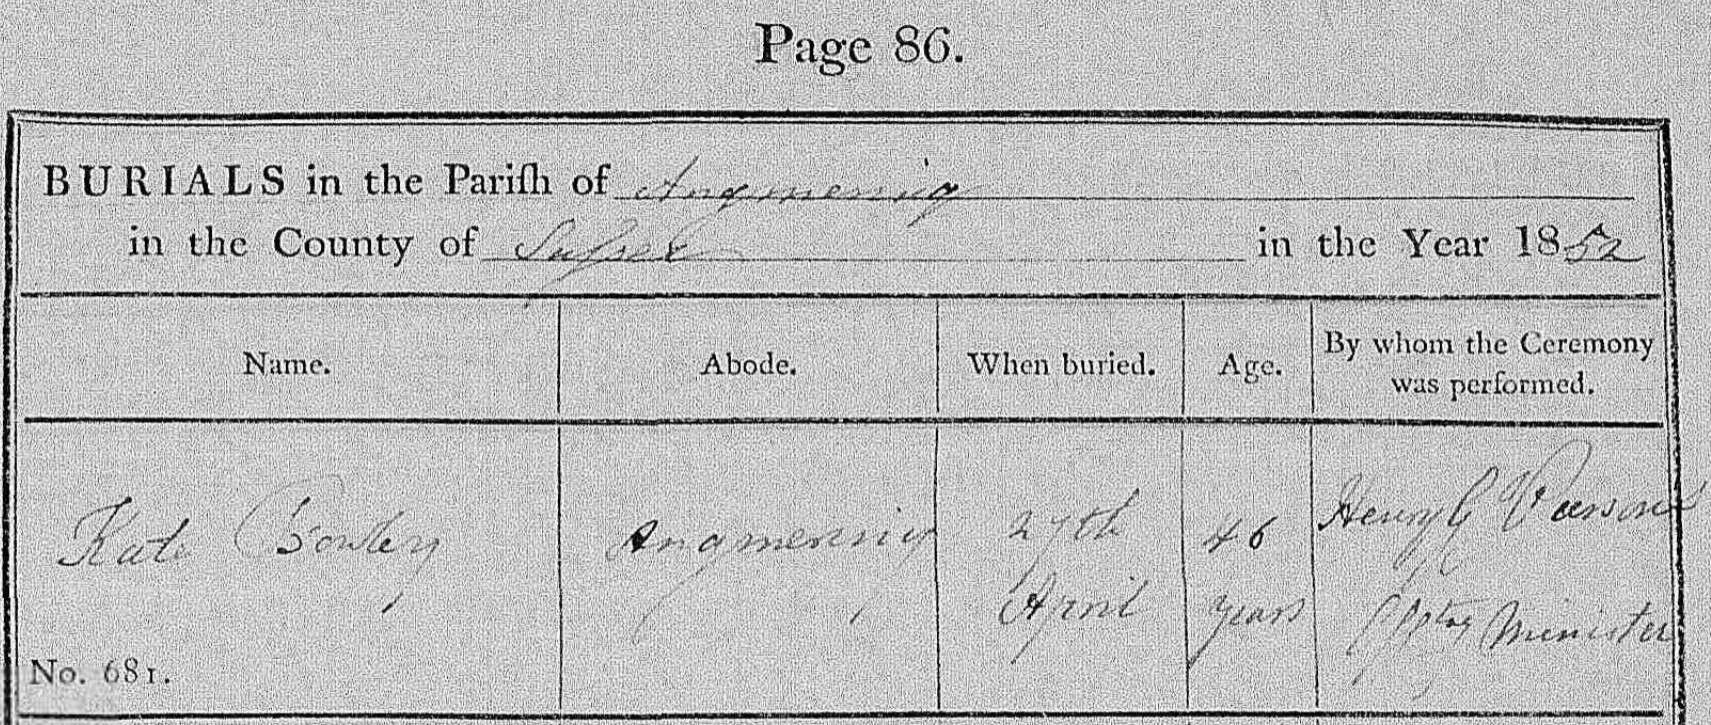 Page 86.
BURIALS in the Pariſh of Angmering
in the County of Suſsex in the Year 1852
Name. Abode. When buried. Age. By whom the Ceremony was performed.
Kate Angmering 27th 46 Henry G Parsons
April years Minister
No. 681.